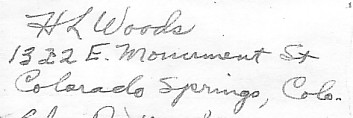 H L Woods
1322 E. Monument St
Colorado Springs, Colo.